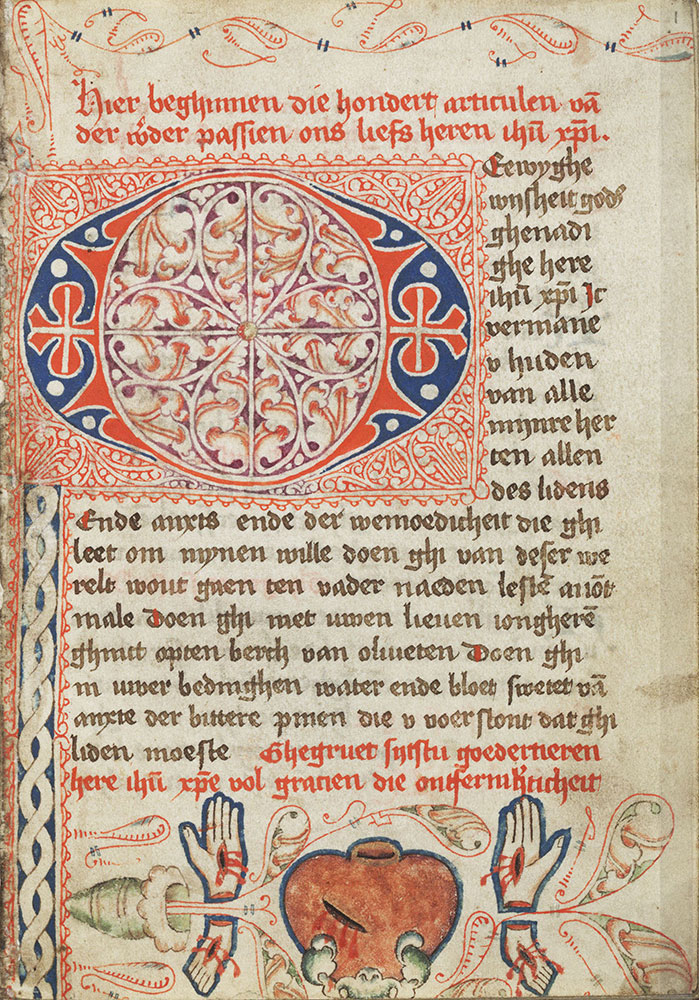 Hier beghinnen die hondert articulen vā
der w̄der passien ons liefs heren ihū xp̄i.
O Eewyghe
wijsheit gods
ghenadi
ghe here
ihū xp̄i Jc
vermane
v huden
van alle
mijnre her
ten allen
des lidens
Ende anxts ende der wemoedicheit die ghi
leet om mynen wille doen ghi van deser we
relt wout gaen ten vader naeden lestē auōt
male Doen ghi met uwen lieuen iongherē
ghinct opten berch van oliueten Doen ghi
in uwer bedinghen water ende bloet swetet vā
anxte der bittere pinen die v voer stont dat ghi
liden moeste Ghegruet sijtstu goedertieren
here ihū xp̄e vol gracien die ontfermh̄ticheit